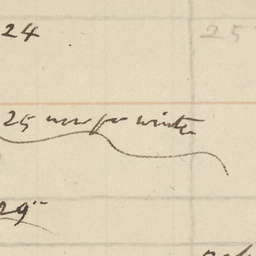 24 25
25 now for winter
29"